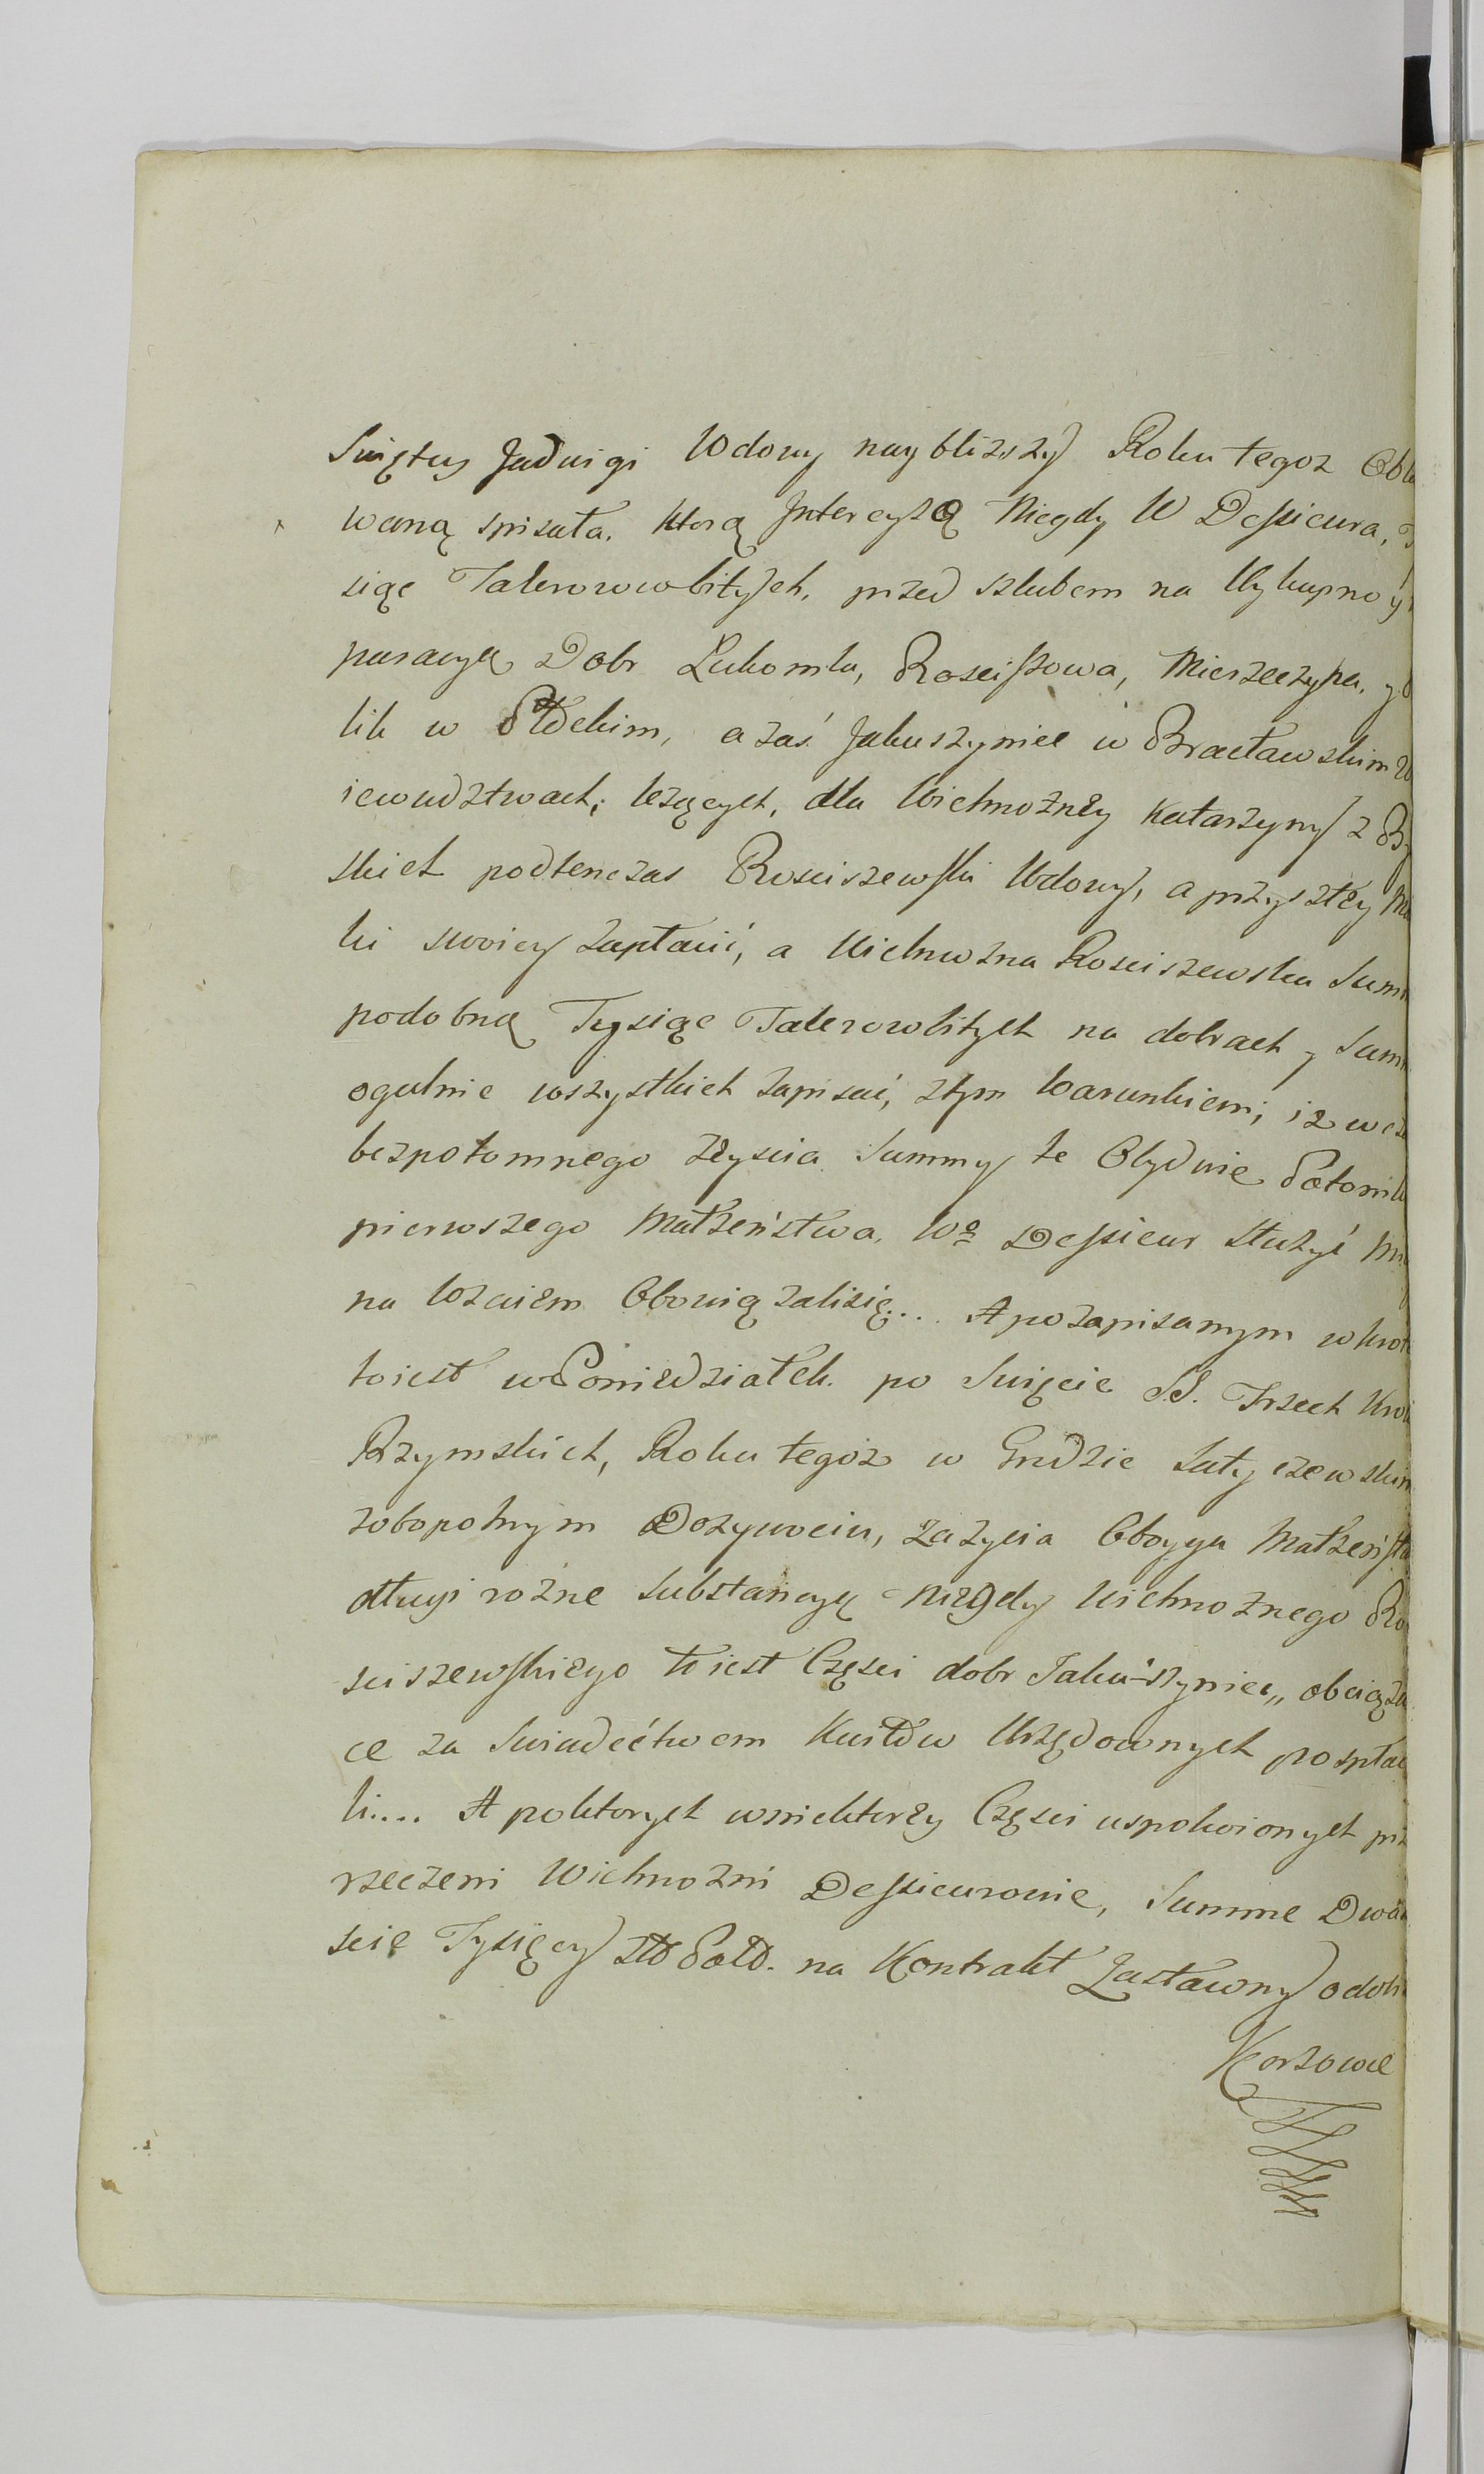 Swiętey Jadwigi Wdowy naybliższy Roku tegoz Obla
waną spisała, ktorą Intercyzą Niegdy W Dessieura, Ty
siąc Talerowbitych, przed szlubem na Wykupno y
paracyą Dobr Lukomla, Rosciszowa, Mierzeczyna, y
lik w Płłckim, a zaś Jakuszyniec w Bracławskim W
iewudztwach, leżących, dla Wielmożney Katarzyny z By
skich podtenczas Rosciszewski Wdowy, a przyszłey Mał
ki swoiey zapłacić, a Wielmożna Rosciszewska Sum
podobną Tysiąc Talerowbitych na dobrach y Sum
ogulnie wszystkich zapisać, ztym Warunkiem, iż w cza
bezpotomnego zeyscia Summy te Obydwie Potomk
pierwszego Małżeństwa, Wo Dessieur służyć m
na wzaiem Obowiązalisię... A po zapisanym w krot
toiest w Poniedziałek po Swięcie SS. Trzech Krol
Rzymskich, Roku tegoż w Grodzie Latyczewskim
zobopolnym Dożywociu, zażycia Oboyga Małżeńst
długi rożne substancyą niegdy Wielmożnego Ro
sciszewskiego to iest Części dobr Jaku-szyniec,, obciąża
ce za swiadectwem Kwitów Urzędownych pospłac
li.... A poktorych wniektorey Części uspokoionych prz
rzeczeni Wielmożni Dessieurowie, Summe Dwa
scie Tysięcy Złł Poll. na Kontrakt Zastawny odob
Korzowe